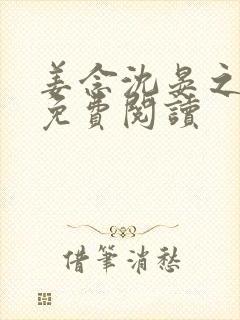 姜念沈晏之
免費閱讀
借筆消愁